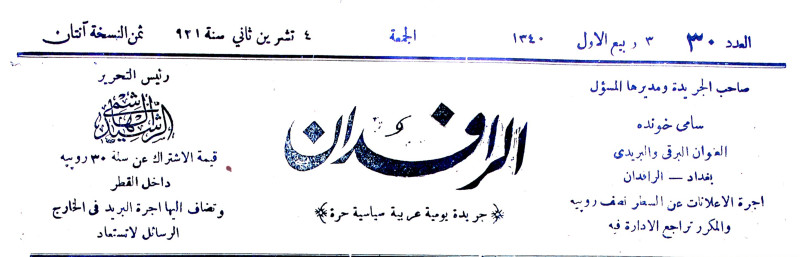 العدد ٣٠ ٣ ربيع الاول ١٣٤٠ الجمعة ٤ تشرين ثاني سنة ٩٢١ ثمن النسخة آنتان
صاحب الجريدة ومديرها المسؤل
سامى خونده
العنوان البرقى والبريدى
بغداد — الرافدان
اجرة الاعلانات عن السطر نصف روبيه
والمكرر تراجع الادارة فيه
الرافدان
جريدة يومية عربية سياسية حرة
رئيس التحرير
الرشيد الهاشمي
قيمة الاشتراك عن سنة ٣٠ روبيه
داخل القطر
وتضاف اليها اجرة البريد فى الخارج
الرسائل لاتستعاد